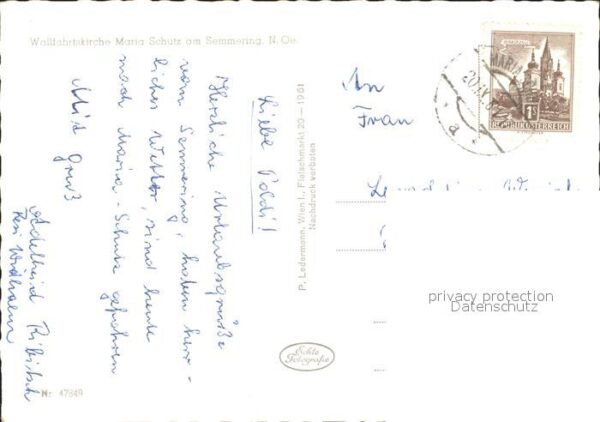 Wallfahrtskirche Maria Schutz am Semmering, N. Oe.
Liebe Poldi!
Herzliche Urlaubsgrüße
vom Semmering, haben herr-
liches Wetter, sind heute
nach Maria-Schutz gefahren
Mit Gruß
Adelheid
P. Ledermann, Wien I., Fleischmarkt 20 – 1961
Nachdruck verboten
Echte
Fotografie
Nr. 47849
An
Frau
MARIA
1S
REPUBLIK ÖSTERREICH
a
privacy protection
Datenschutz